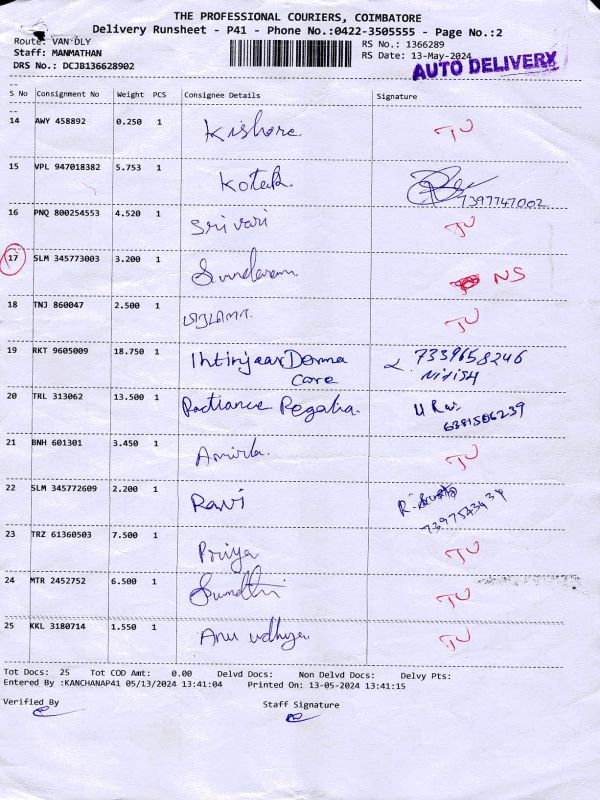 THE PROFESSIONAL COURIERS, COIMBATORE
Delivery Runsheet - P41 - Phone No.:0422-3505555 - Page No.:2
Route: VAN DLY RS No.: 1366289
Staff: MANMATHAN RS Date: 13-May-2024
DRS No.: DCJB136628902 AUTO DELIVERY
S No Consignment No Weight PCS Consignee Details Signature
14 AWY 458892 0.250 1 Kishore. TU
15 VPL 947018382 5.753 1 Kotak. 7397747002
16 PNQ 800254553 4.520 1 Sri vari TU
17 SLM 345773003 3.200 1 Sundaram NS
18 TNJ 860047 2.500 1 TU
19 RKT 9605009 18.750 1 Derma 7339658246
Care Nitish
20 TRL 313062 13.500 1 Radiance Regalia. 6381506239
21 BNH 601301 3.450 1 TU
22 SLM 345772609 2.200 1 Ravi
7397543434
23 TRZ 61360503 7.500 1 Priya TU
24 MTR 2452752 6.500 1 TU
25 KKL 3180714 1.550 1 Anu TU
Tot Docs: 25 Tot COD Amt: 0.00 Delvd Docs: Non Delvd Docs: Delvy Pts:
Entered By :KANCHANAP41 05/13/2024 13:41:04 Printed On: 13-05-2024 13:41:15
Verified By Staff Signature